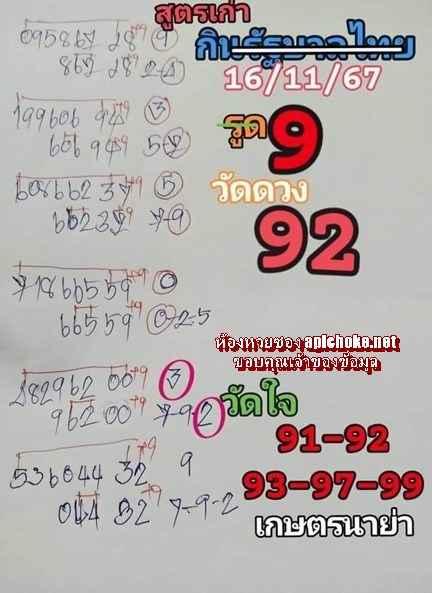 สูตรเก่า
กินรัฐบาลไทย
16/11/67
095867 28+9 9
867 28+9 2
199606 94+9 3
606 94+9 5
รูด 9
วัดดวง
92
608662 37+9 5
662 37 79
7186655 59+9 0
66559+9 0-2-5
ห้องหวยซอง apichoke.net
ขอบคุณเจ้าของข้อมูล
282962 00+9 3
962 00+9 7-9-2
วัดใจ
91-92
93-97-99
เกษตรนาย่า
536044 32+9 9
044 32+9 7-9-2